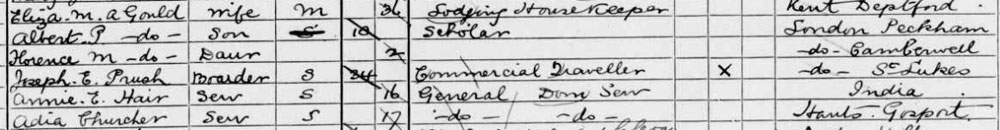 Eliza. M. a Gould wife M 36 Lodging House Keeper Kent Deptford.
Albert. P -do- Son S 10 Scholar London Peckham
Florence M -do- Daur 2 -do- Camberwell
Joseph. E. Prush Boarder S 24 Commercial Traveller X -do- St Lukes
Annie. E. Hair Serv S 16 General Dom Serv India
Adia Churcher Serv S 17 -do- -do- Hants. Gosport.